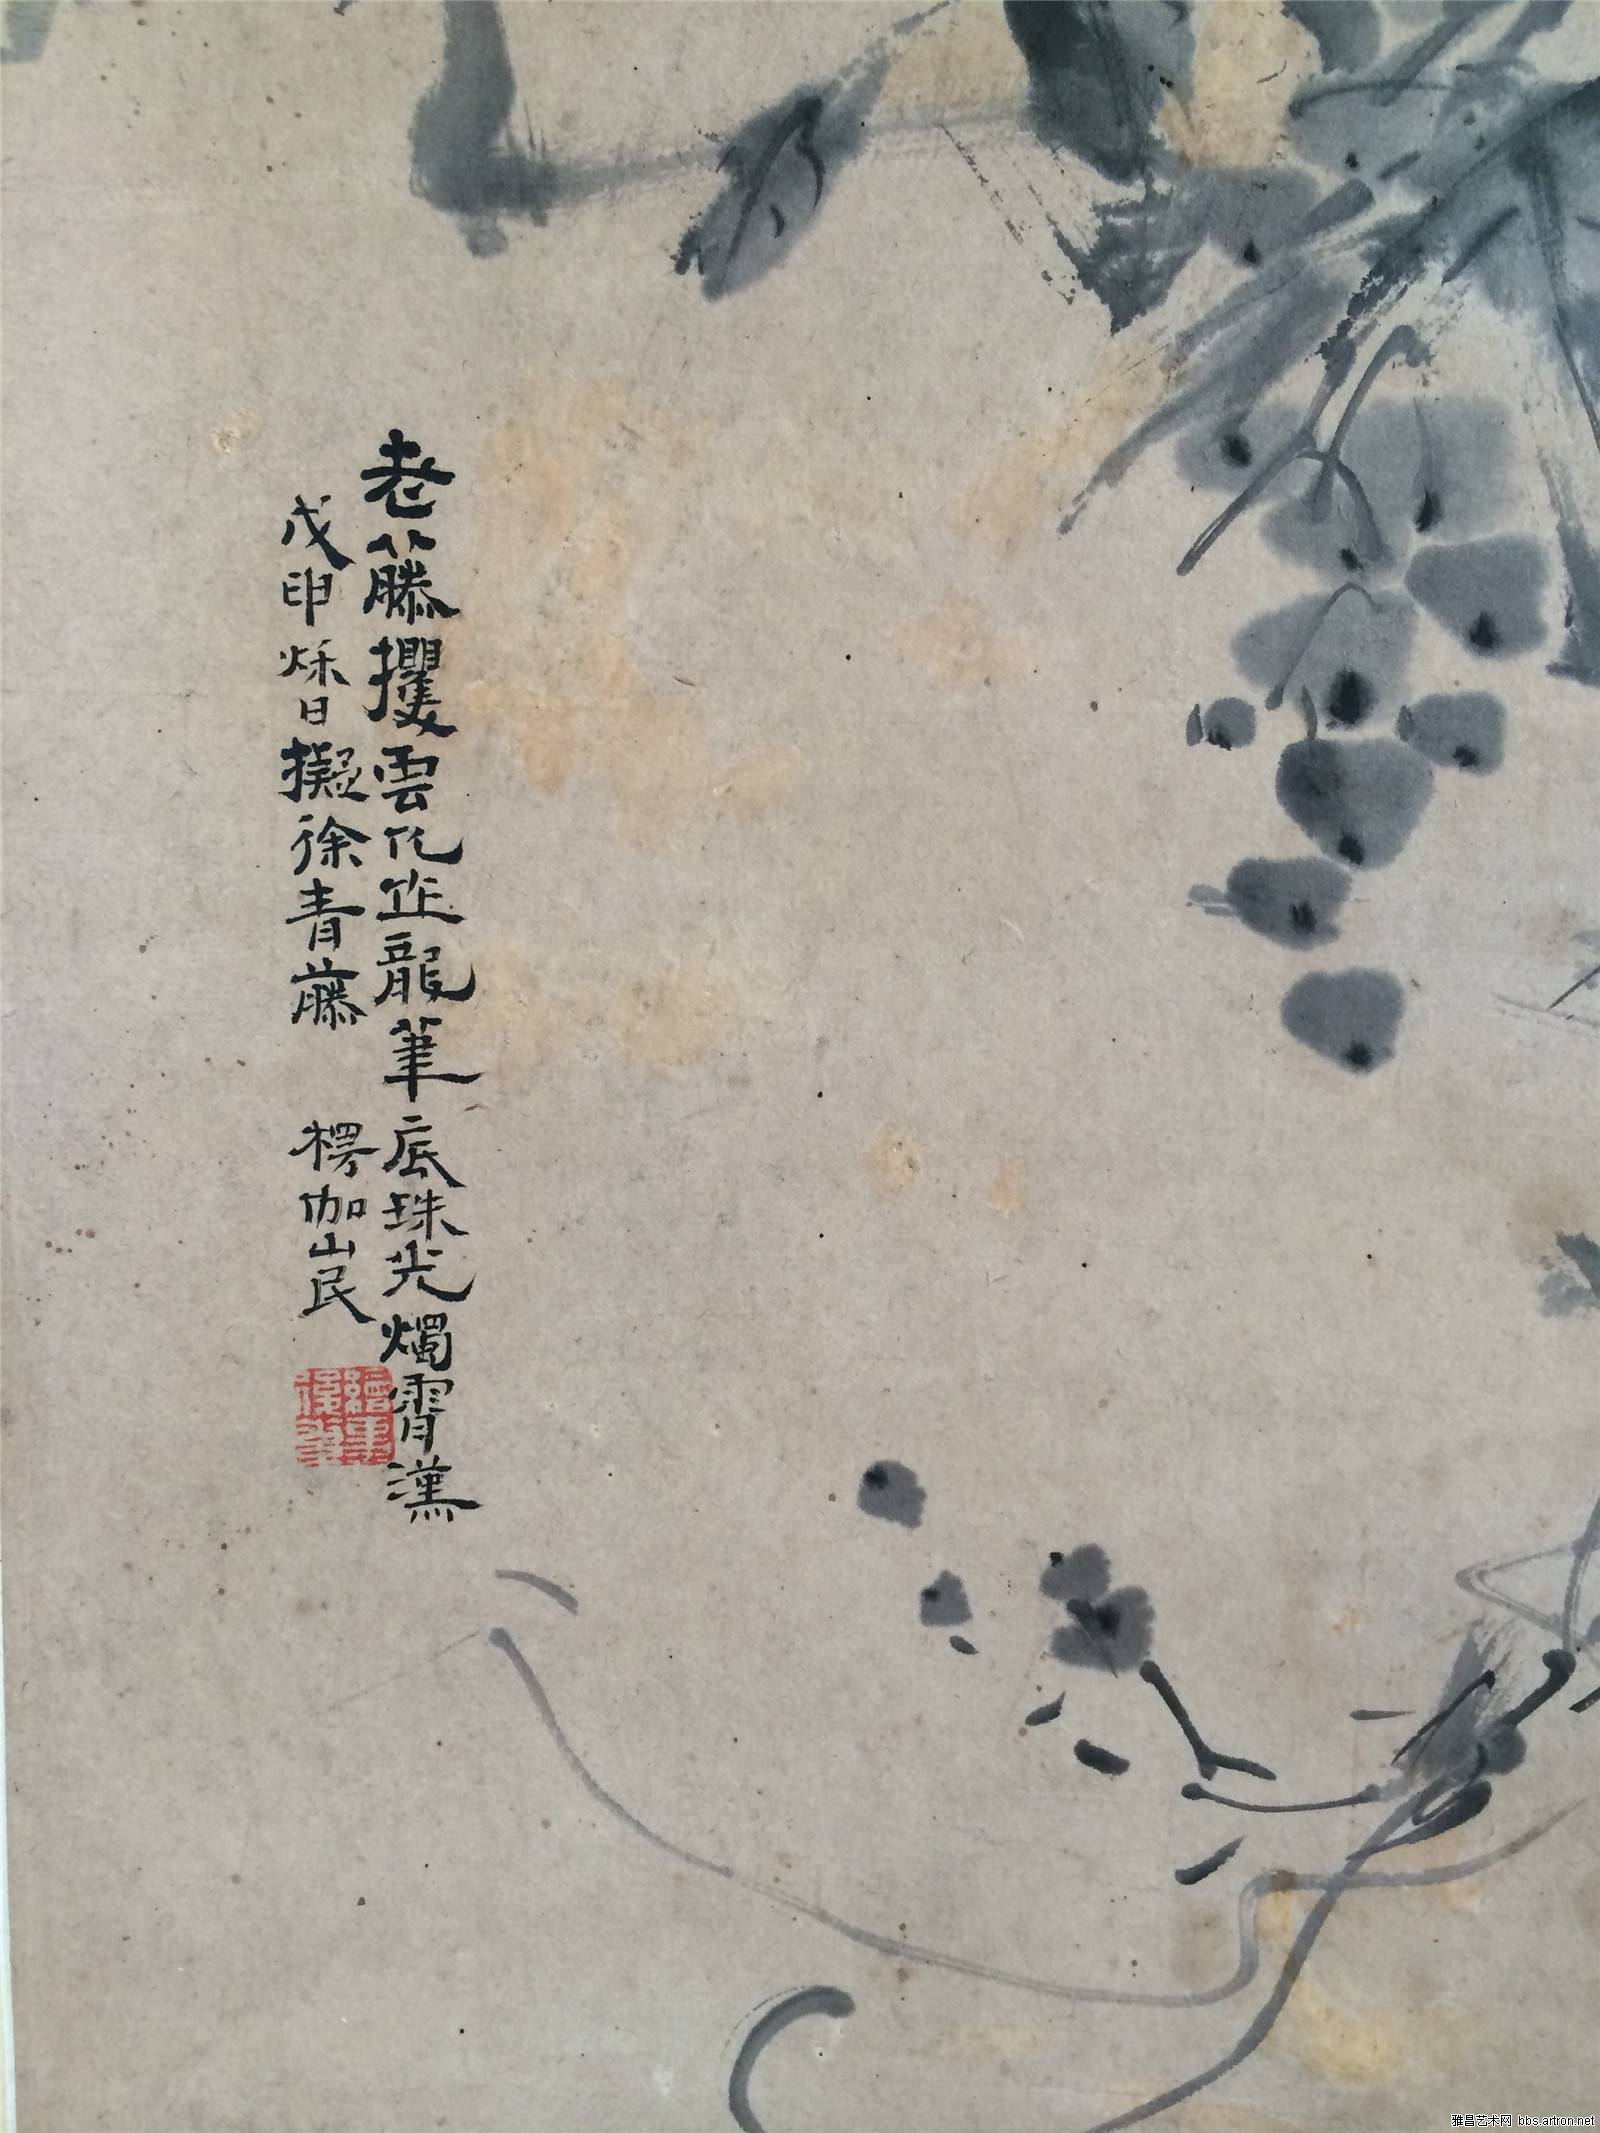 老藤攫雲化作龍筆底珠光燭霄漢
戊申秌日擬徐青藤 楞伽山民
繪事後筆
雅昌艺术网 bbs.artron.net